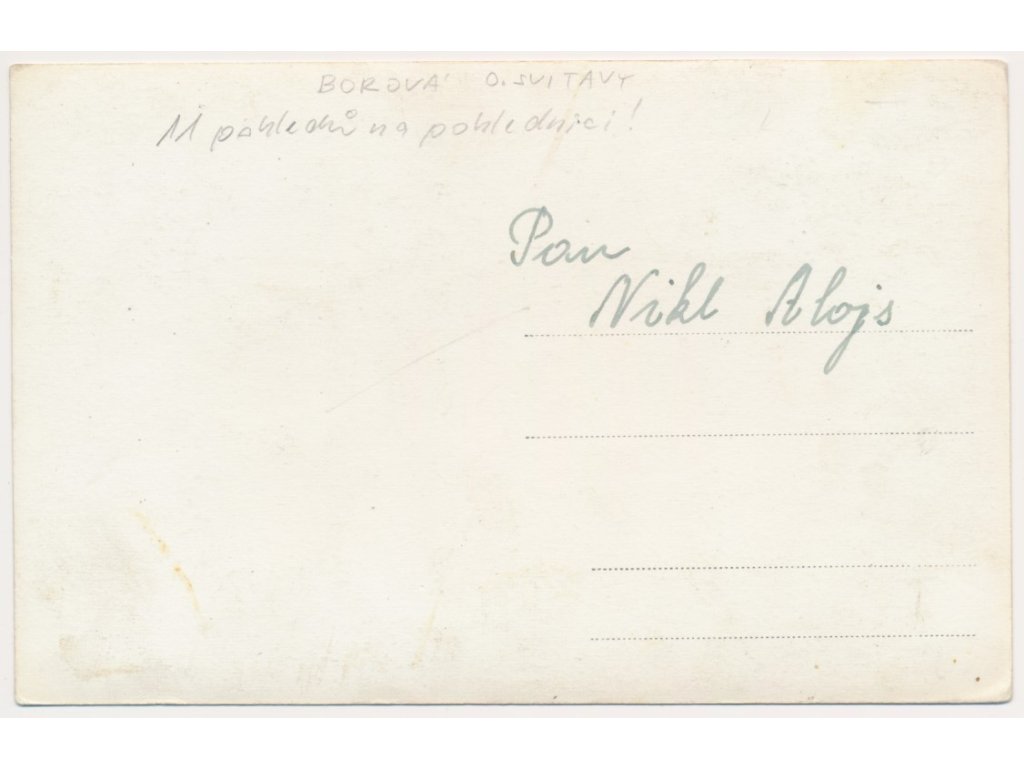 BOROVÁ O. SVITAVY
11 pohledů na pohlednici!
Pan
Nikl Alojs